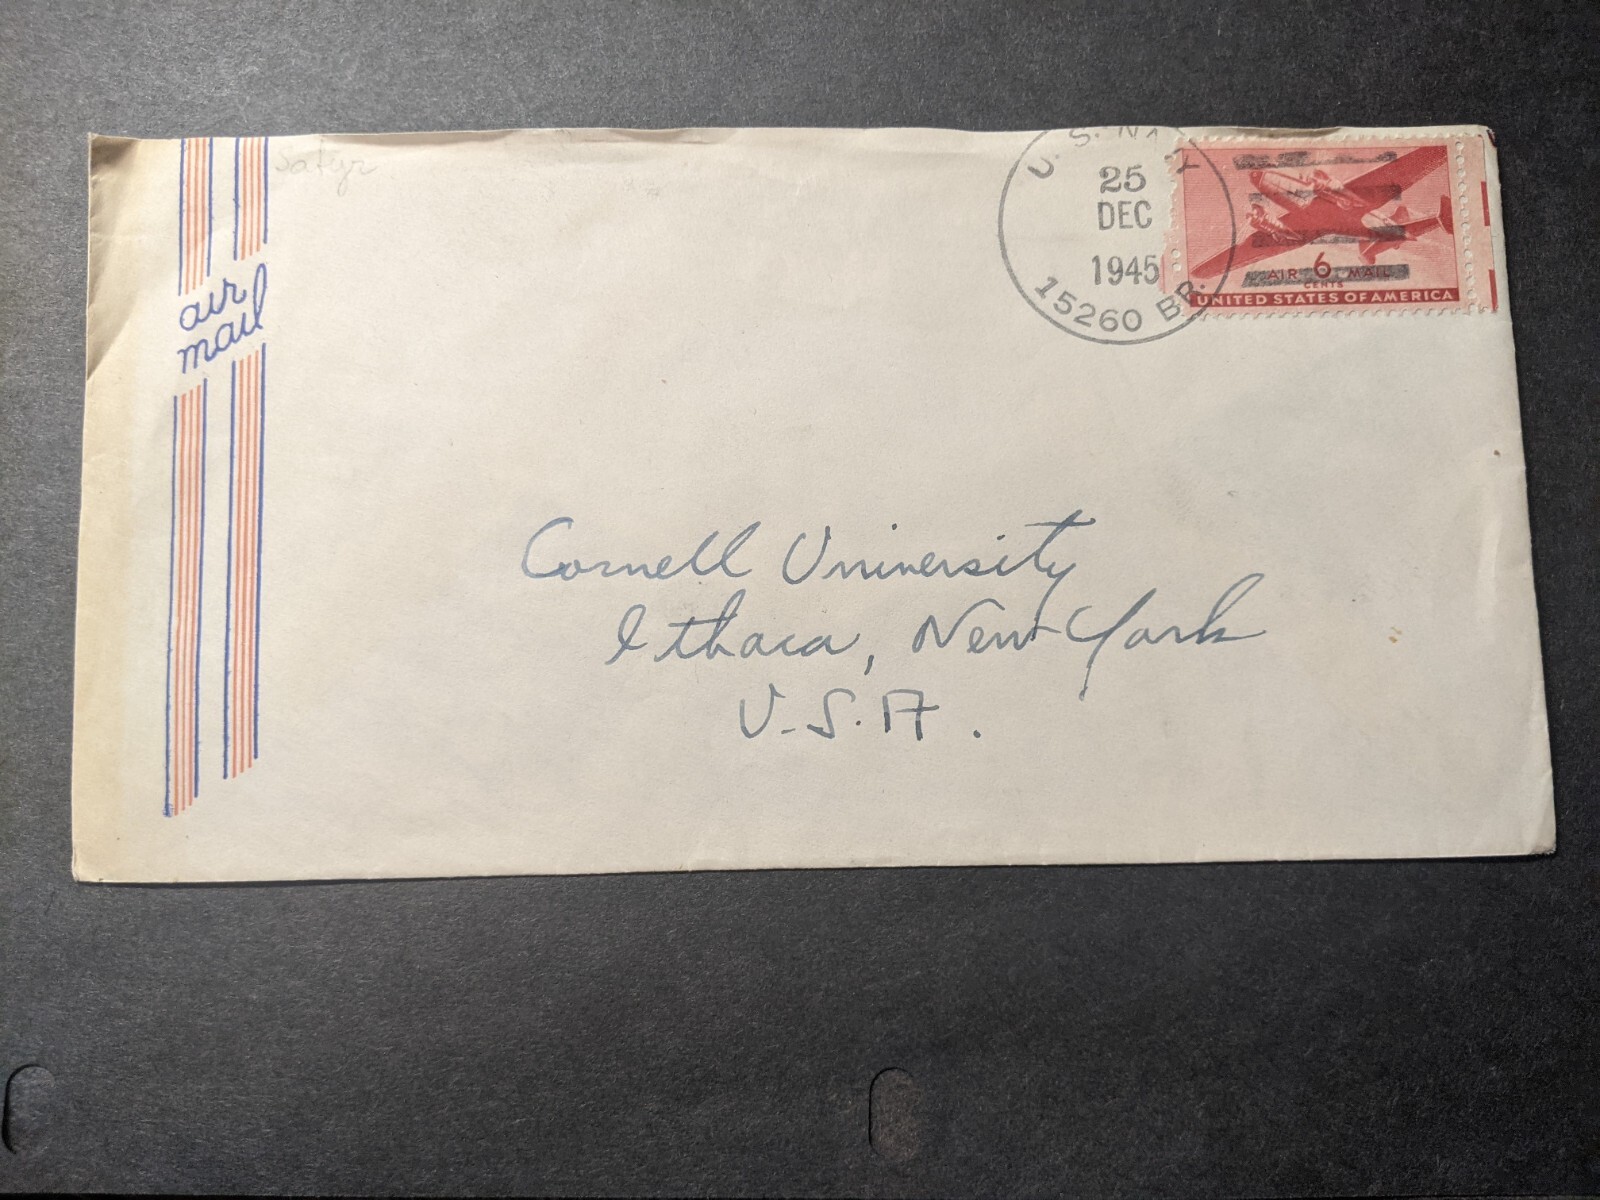 Satyr
U. S. NAVY
25
DEC
1945
15260 BR.
AIR 6 MAIL
CENTS
UNITED STATES OF AMERICA
air
mail
Cornell University
Ithaca, New York
U.S.A.